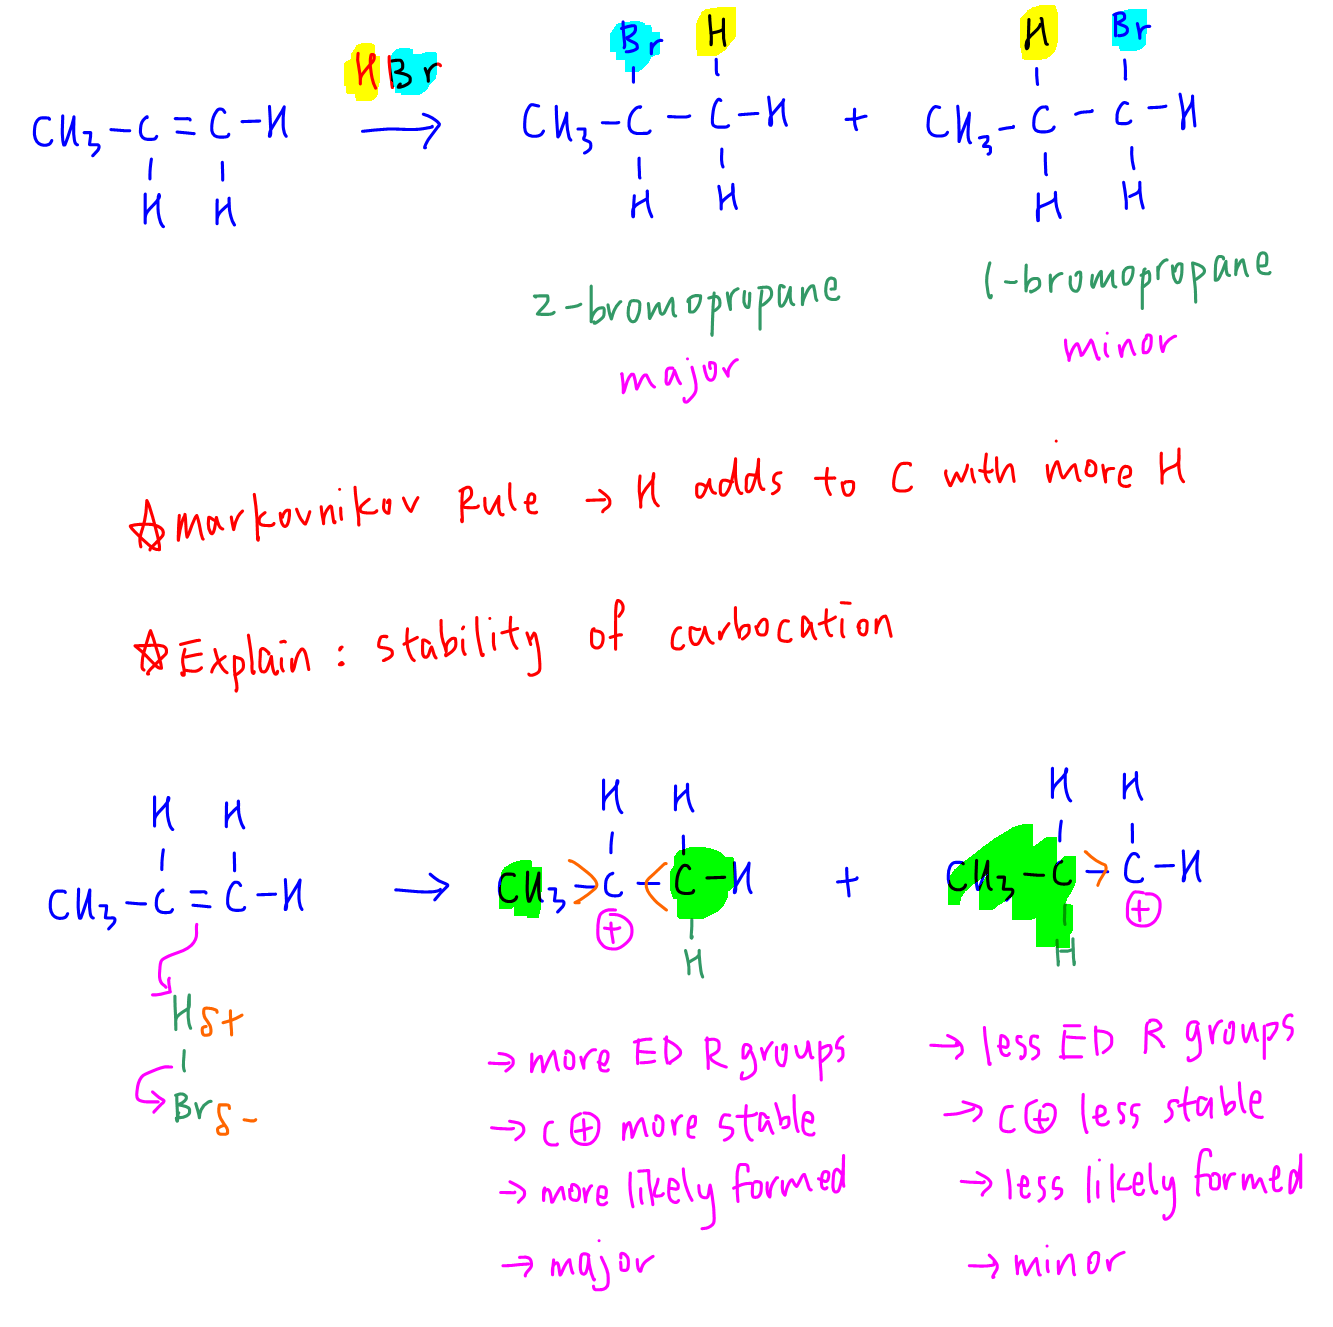 HBr
Br H
H Br
CH3-C=C-H → CH3-C-C-H + CH3-C-C-H
H H H H H H
2-bromopropane 1-bromopropane
major minor
☆ markovnikov Rule → H adds to C with more H
☆ Explain : stability of carbocation
H H H H H H
CH3-C=C-H → CH3-C-C-H + CH3-C-C-H
⊕ ⊕
H H
Hδ+
Brδ-
→ more ED R groups
→ C⊕ more stable
→ more likely formed
→ major
→ less ED R groups
→ C⊕ less stable
→ less likely formed
→ minor